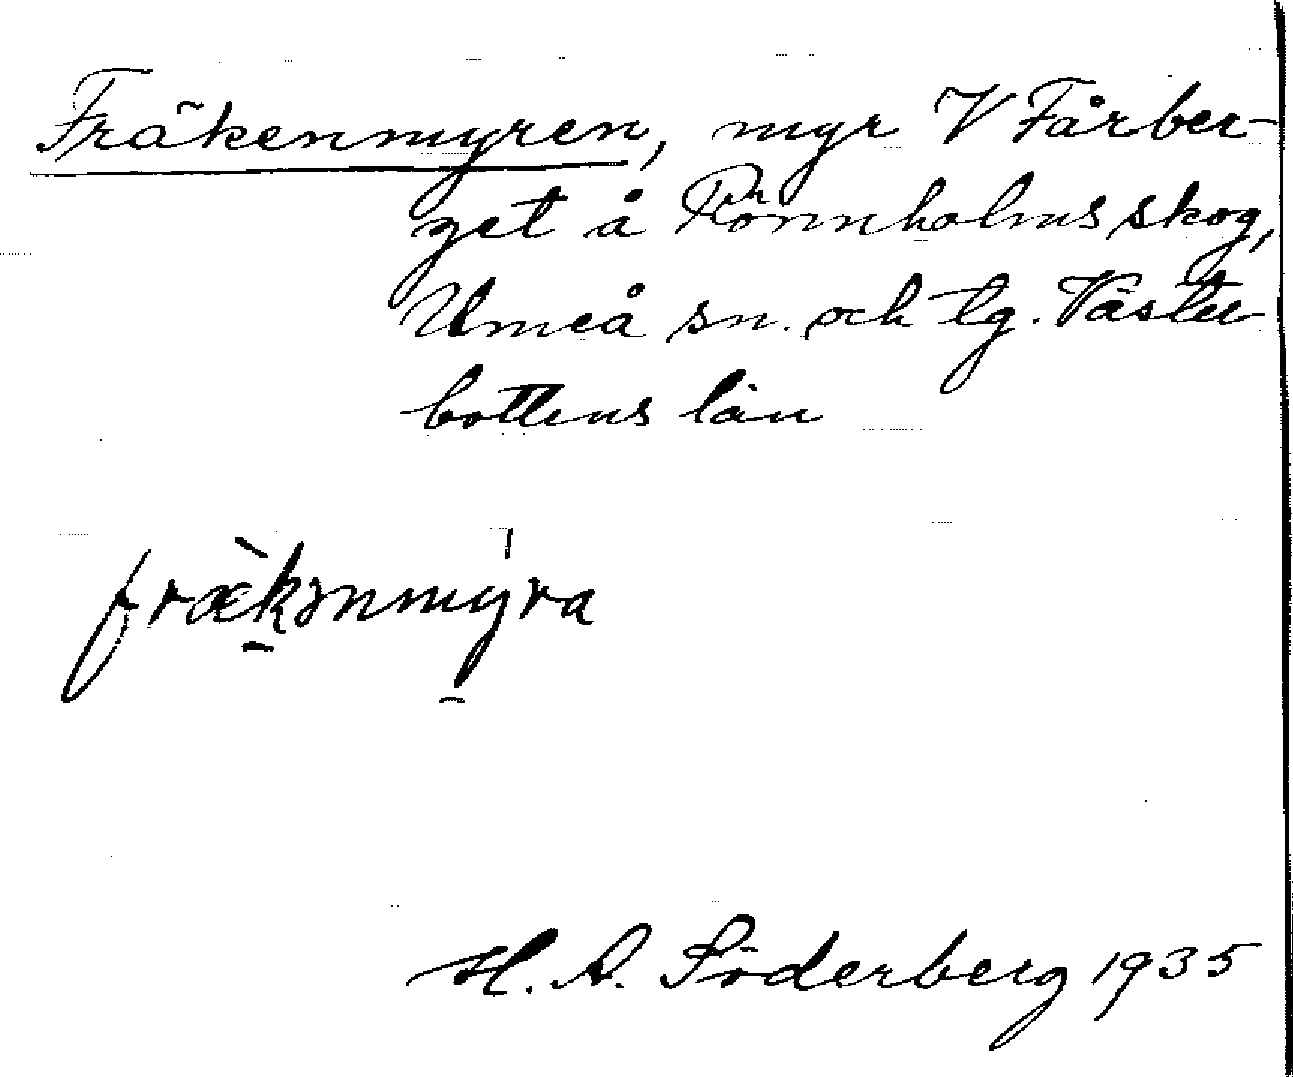 Fräkenmyren, myr V Fårber-
get å Rönnholms skog,
Umeå sn. och tg. Väster-
bottens län
fræ̀kənmyˈra
H. A. Söderberg 1935